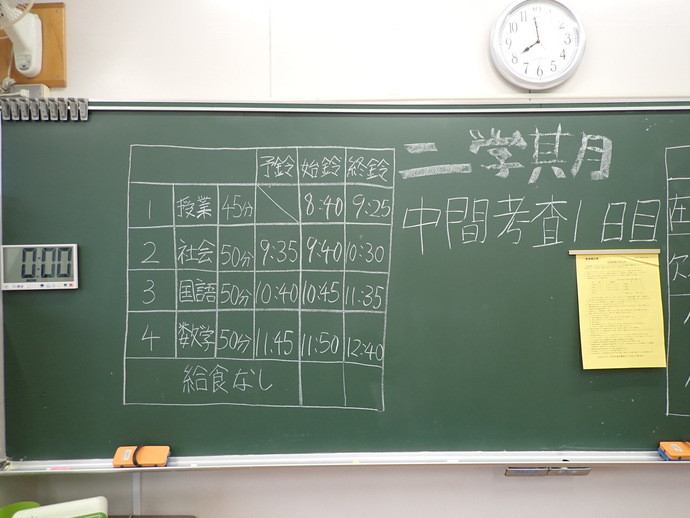 二学期
中間考査1日目
予鈴 始鈴 終鈴
1 授業 45分 8:40 9:25
2 社会 50分 9:35 9:40 10:30
3 国語 50分 10:40 10:45 11:35
4 数学 50分 11:45 11:50 12:40
給食なし
0:00
12 1 2 3 4 5 6 7 8 9 10 11